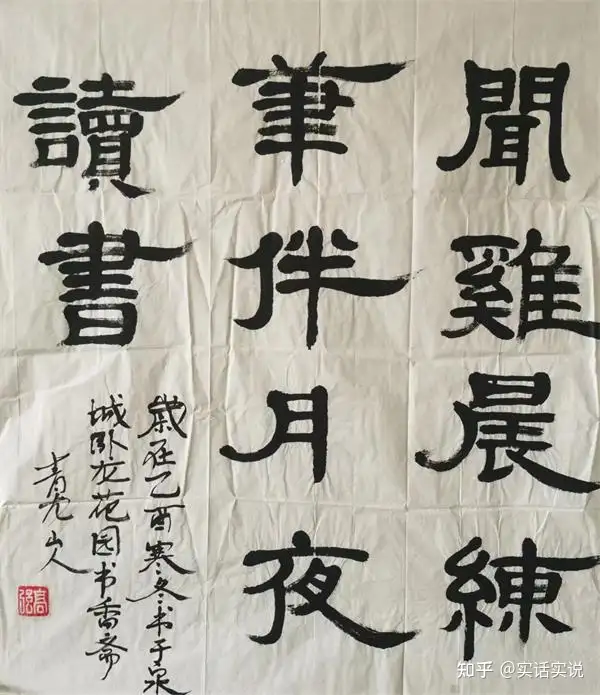 聞雞晨練
筆伴月夜
讀書
歲在乙酉寒冬书于泉
城卧龙花园书香斋
山人
知乎 @实话实说